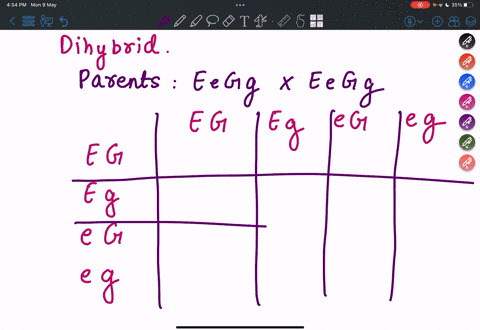 4:54 PM Mon 9 May
35%
Dihybrid.
Parents : EeGg x EeGg
EG Eg eG eg
EG
Eg
eG
eg